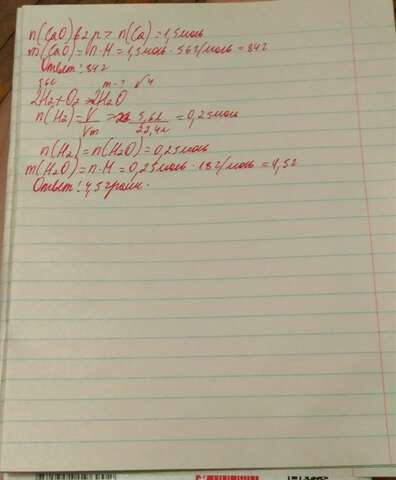 n(CaO) б2р > n(Ca) = 1,5 моль
m(CaO) = n·M = 1,5 моль · 56 г/моль = 84 г
Ответ: 84 г
5,6 л m - ? √4
2H2 + O2 → 2H2O
n(H2) = V/Vm = 5,6 л/22,4 л = 0,25 моль
n(H2) = n(H2O) = 0,25 моль
m(H2O) = n·M = 0,25 моль · 18 г/моль = 4,5 г
Ответ: 4,5 грамм.